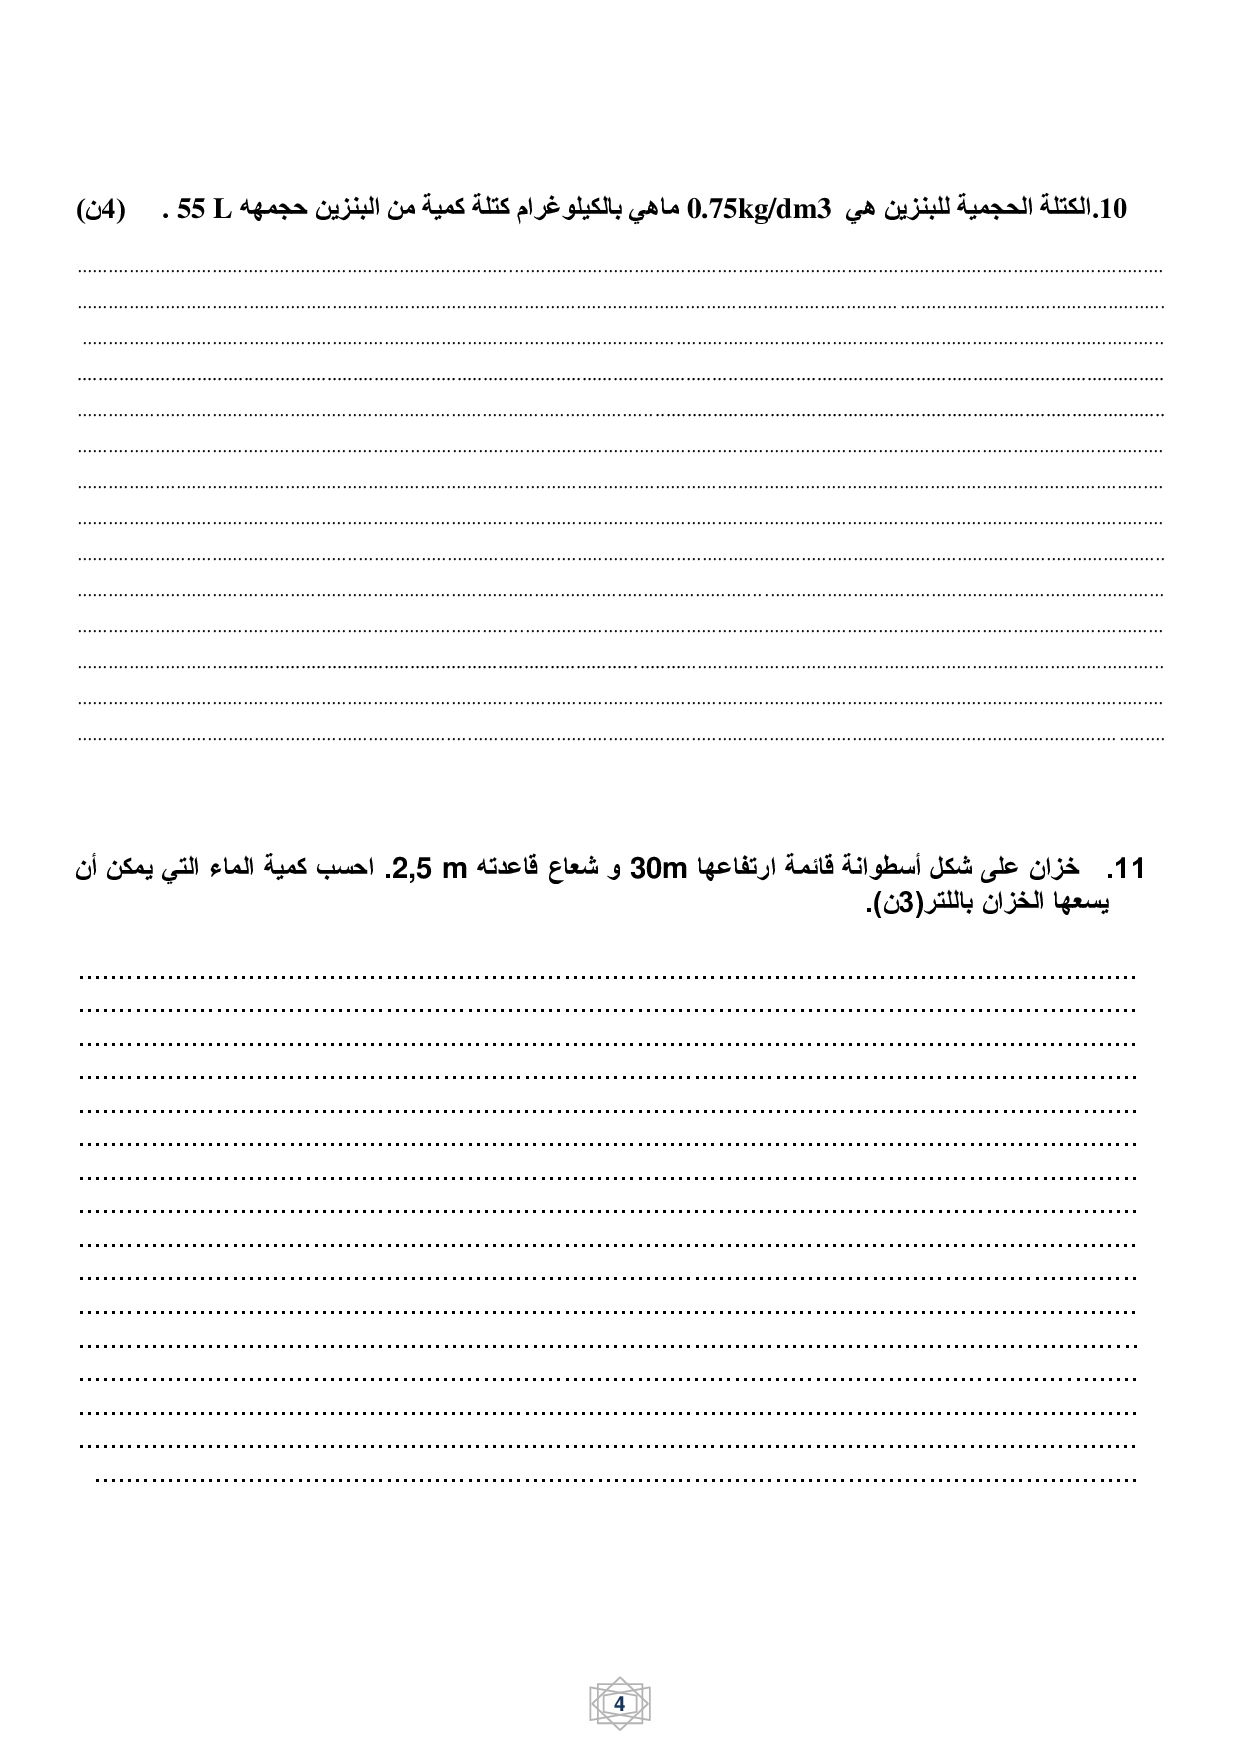 10.الكتلة الحجمية للبنزين هي 0.75kg/dm3 ماهي بالكيلوغرام كتلة كمية من البنزين حجمهه 55 L . (4ن)
11. خزان على شكل أسطوانة قائمة ارتفاعها 30m و شعاع قاعدته 2,5 m. احسب كمية الماء التي يمكن أن
يسعها الخزان باللتر(3ن).
4